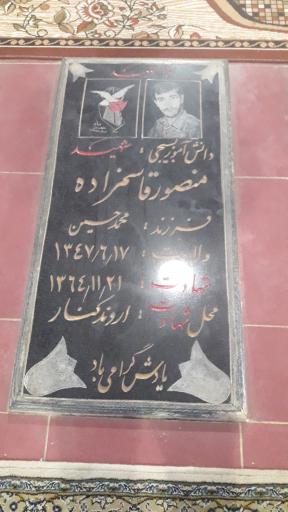 دانش آموز بسیجی: شهید
منصور قاسمزاده
فرزند: محمد حسین
ولادت: ۱۳۴۷/۶/۱۷
شهادت: ۱۳۶۴/۱۱/۲۱
محل شهادت: اروندکنار
یادش گرامی باد